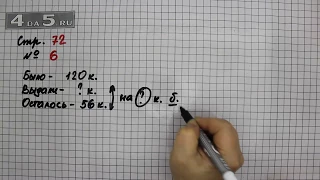 4 DA 5 .RU
Стр. 72
№ 6
Было - 120 к.
Выдали - ? к.
Осталось - 56 к. на ? к. б.